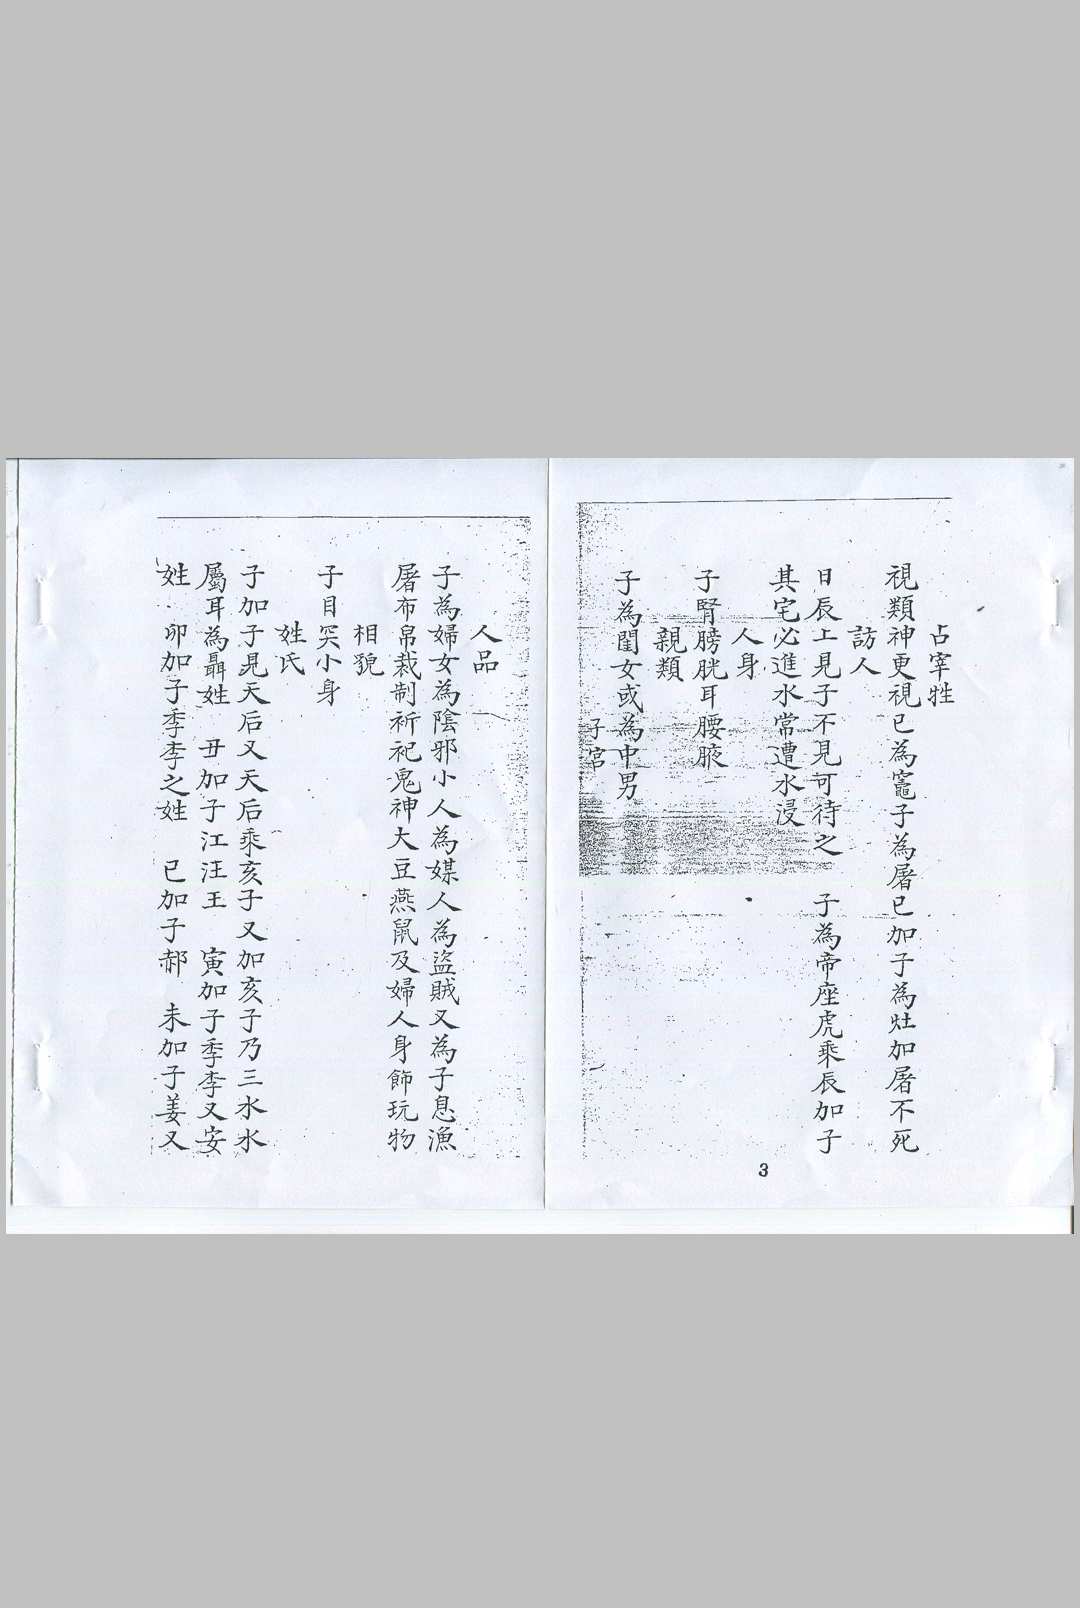 占宰牲
視類神更視巳為竈子為屠巳加子為灶加屠不死
訪人
日辰上見子不見可待之　子為帝座虎乘辰加子
其宅必進水常遭水浸
人身
子腎膀胱耳腰腋
親類
子為閨女或為中男
子宮
3
人品
子為婦女為陰邪小人為媒人為盜賊又為子息漁
屠布帛裁制祈祀鬼神大豆燕鼠及婦人身飾玩物
相貌
子目突小身
姓氏
子加子見天后又天后乘亥子又加亥子乃三水水
屬耳為聶姓　丑加子江汪王　寅加子季李又安
姓　卯加子季李之姓　巳加子郝　未加子姜又